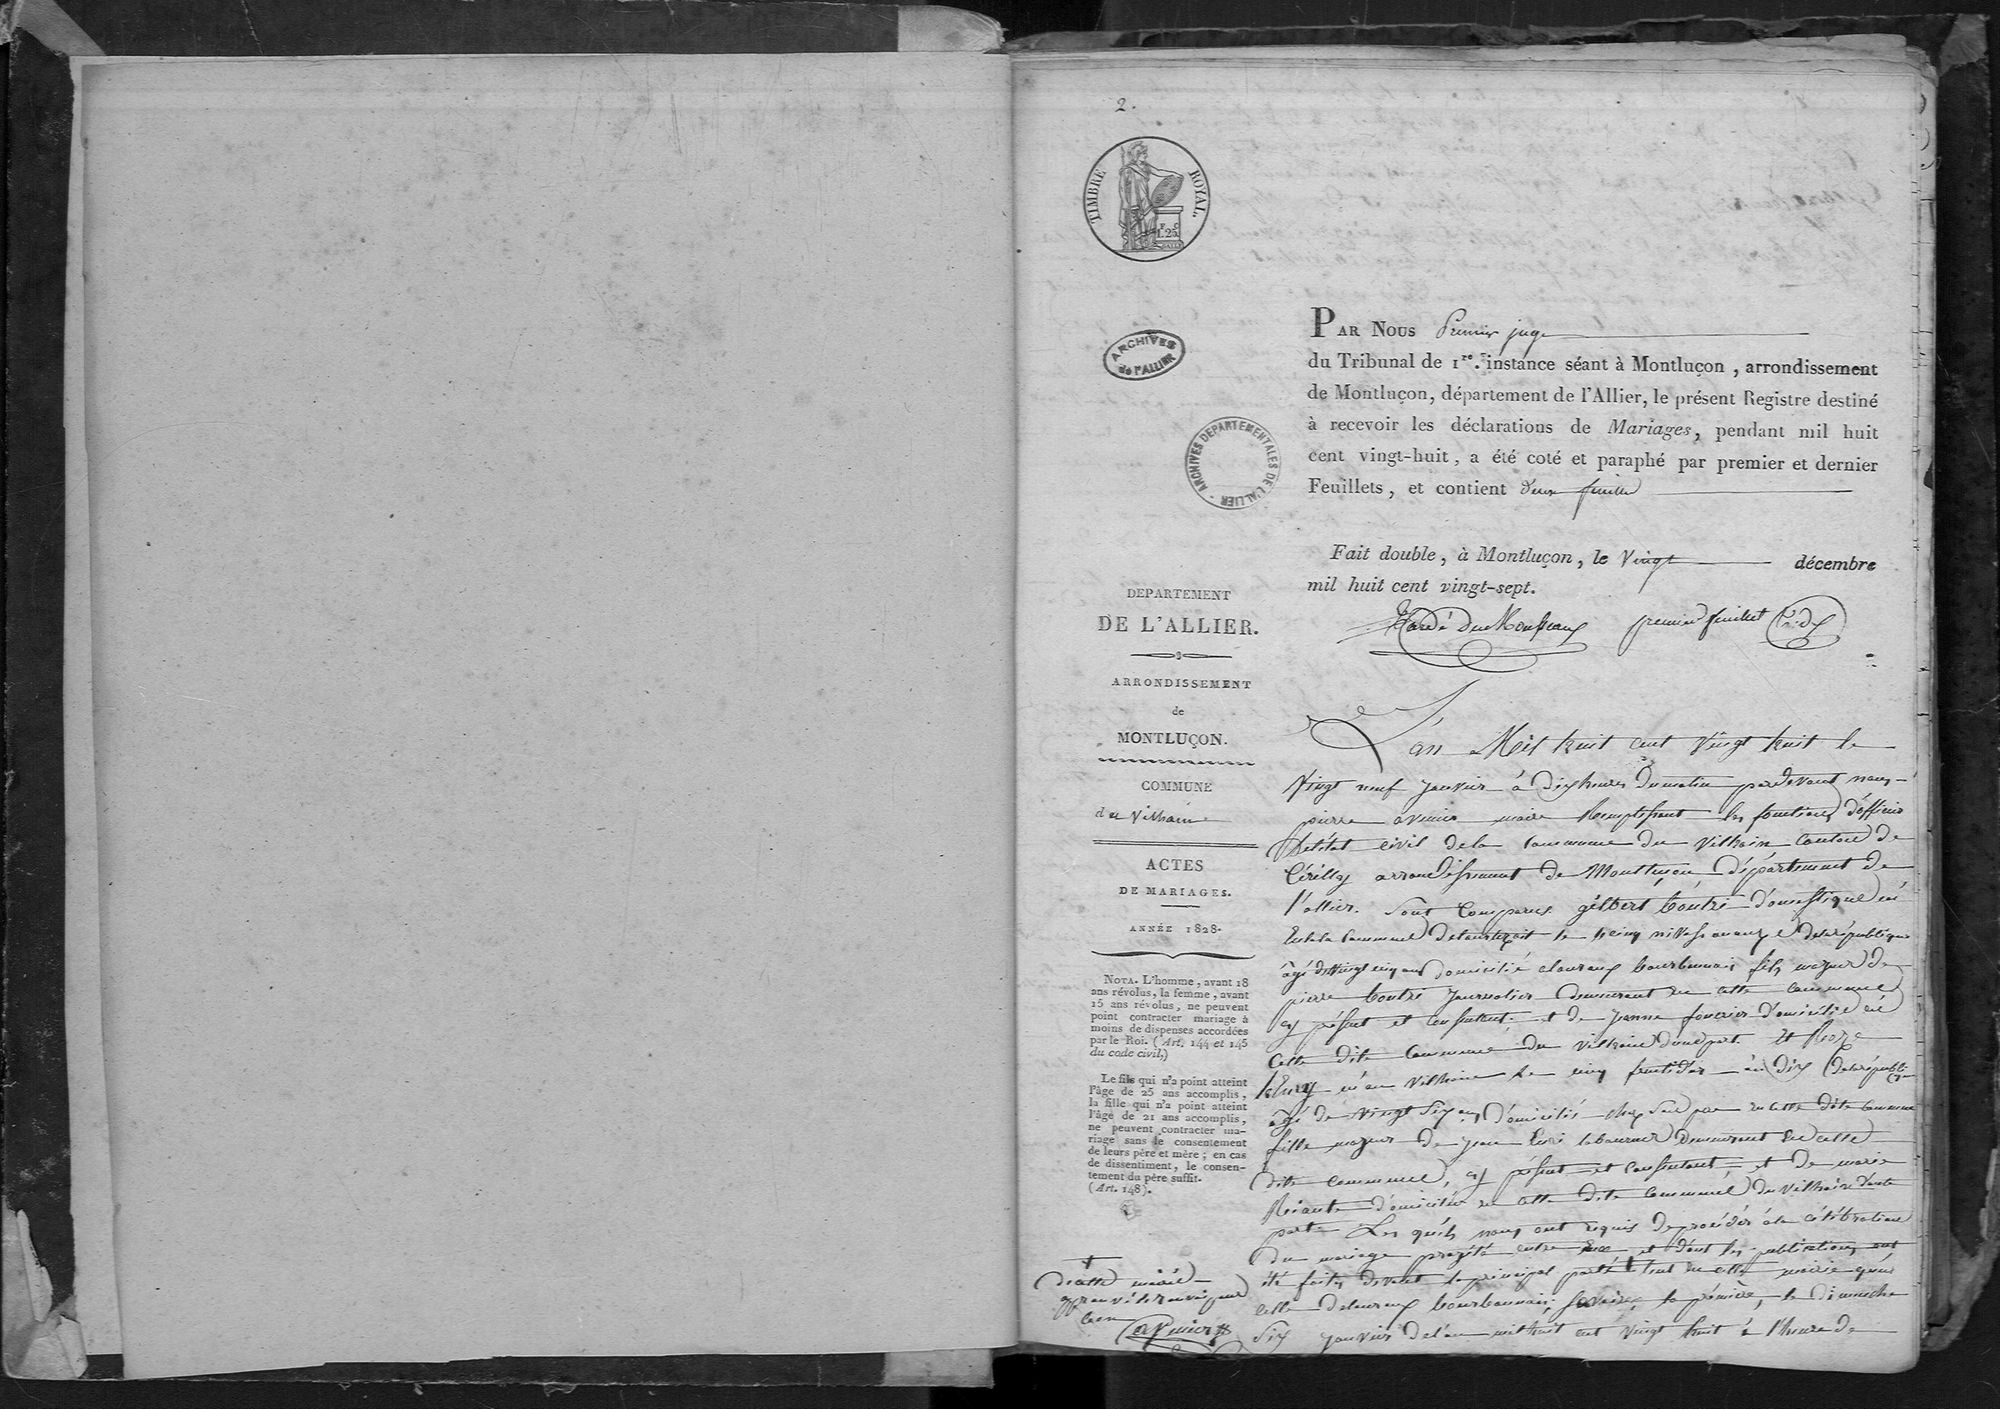 2.
TIMBRE ROYAL
1.25
ARCHIVES
de l'ALLIER
ARCHIVES DEPARTEMENTALES DE L'ALLIER
PAR NOUS Premier juge
du Tribunal de 1re. instance séant à Montluçon, arrondissement
de Montluçon, département de l'Allier, le présent Registre destiné
à recevoir les déclarations de Mariages, pendant mil huit
cent vingt-huit, a été coté et paraphé par premier et dernier
Feuillets, et contient deux feuilles
Fait double, à Montluçon, le Vingt décembre
mil huit cent vingt-sept.
premier feuillet
DEPARTEMENT
DE L'ALLIER.
ARRONDISSEMENT
de
MONTLUÇON.
COMMUNE
du Vilhain
ACTES
DE MARIAGES.
ANNÉE 1828.
NOTA. L'homme, avant 18
ans révolus, la femme, avant
15 ans révolus, ne peuvent
point contracter mariage à
moins de dispenses accordées
par le Roi. (Art. 144 et 145
du code civil.)
Le fils qui n'a point atteint
l'âge de 25 ans accomplis,
la fille qui n'a point atteint
l'âge de 21 ans accomplis,
ne peuvent contracter ma-
riage sans le consentement
de leurs père et mère; en cas
de dissentiment, le consen-
tement du père suffit.
(Art. 148).
L'an Mil huit cent Vingt huit le
Vingt neuf janvier à Dix heures du matin pardevant nous
pierre avenier maire Remplissant les fonctions d'officier
de l'état civil de la commune du Vilhain canton de
Cérilly arrondissement de Montluçon département de
l'allier. Sont Comparus gilbert Contri domestique né
En la commune de le cinq nivose an onze de la république
âgé de Vingt cinq ans domicilié a bourbonnais fils majeur de
pierre Contri journalier demeurant en cette commune
cy présent et consentant, et de jeanne domiciliée en
Cette dite commune du Vilhain d'une part. Et Roze
né au Vilhain le cinq fructidor an Dix de la république
âgé de Vingt Six ans domiciliée chez son père en cette dite commune
fille majeur de jean laboureur demeurant En cette
dite commune, cy présent et consentant, et de marie
domiciliée en cette dite commune du Vilhain d'autre
part Les quels nous ont requis de procéder à la célébration
du mariage projeté entre Eux et dont les publications ont
été faites devant la principal porte tant de cette mairie que
celle bourbonnais; savoir, la première, le dimanche
Six janvier de l'an mil huit cent Vingt huit à l'heure de
de cette mairie
approuvé le renvoi pour
bon
avenier